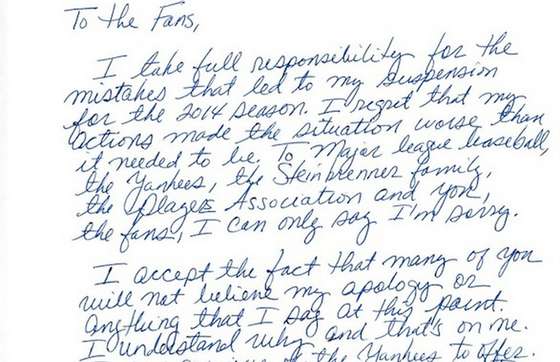 To the Fans,
I take full responsibility for the
mistakes that led to my suspension
for the 2014 season. I regret that my
actions made the situation worse than
it needed to be. To Major league baseball,
the Yankees, the Steinbrenner family,
the Players Association and you,
the fans, I can only say I'm sorry.
I accept the fact that many of you
will not believe my apology or
anything that I say at this point.
I understand why and that's on me.
the Yankees to offer